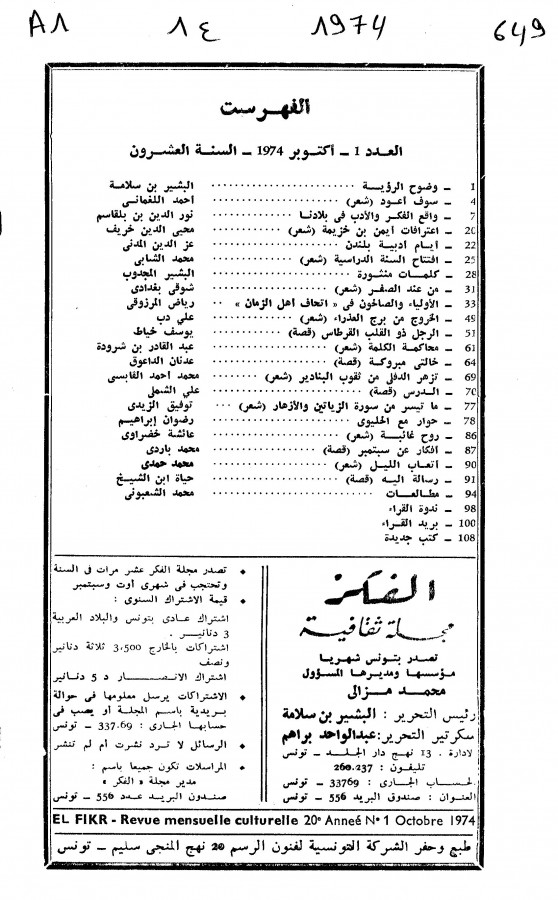 A1 1٤ 1974 649
الفهرست
العدد 1 ـ اكتوبر 1974 ـ السنة العشرون
1 ـ وضوح الرؤية ........ البشير بن سلامة
4 ـ سوف أعود (شعر) ........ احمد اللغماني
7 ـ واقع الفكر والأدب في بلادنا ........ نور الدين بن بلقاسم
20 ـ اعترافات ايمن بن خزيمة (شعر) ........ محيى الدين خريف
22 ـ أيام ادبية بلندن ........ عز الدين المدنى
25 ـ افتتاح السنة الدراسية (شعر) ........ محمد الشابى
28 ـ كلمات منثورة ........ البشير المجدوب
31 ـ من عند الصفر (شعر) ........ شوقى بغدادى
33 ـ الأولياء والصالحون فى « اتحاف أهل الزمان » .. رياض المرزوقى
49 ـ الخروج من برج العذراء (شعر) ........ علي دب
51 ـ الرجل ذو القلب القرطاس (قصة) ........ يوسف خياط
61 ـ محاكمة الكلمة (شعر) ........ عبد القادر بن شرودة
64 ـ خالتى مبروكة (قصة) ........ عدنان الداعوق
69 ـ تزهر الدفلى من ثقوب البنادير (شعر) ........ محمد احمد القابسى
70 ـ الدرس (قصة) ........ علي الشملى
77 ـ ما تيسر من سورة الزياتين والأزهار (شعر) ... توفيق الزيدى
78 ـ حوار مع الحليوى ........ رضوان إبراهيم
86 ـ روح غائبة (شعر) ........ عائشة خضراوى
87 ـ افكار عن سبتمبر (قصة) ........ محمد باردى
90 ـ أتعاب الليل (شعر) ........ محمد حمدى
91 ـ رسالة اليه (قصة) ........ حياة ابن الشيخ
94 ـ مطالعات ........ محمد الشعبونى
98 ـ ندوة القراء
100 ـ بريد القراء
108 ـ كتب جديدة
الفكر
مجلة ثقافية
تصدر بتونس شهريا
مؤسسها ومديرها المسؤول
محمد مزالى
رئيس التحرير : البشير بن سلامة
سكرتير التحرير : عبدالواحد براهم
لادارة . 13 نهج دار الجلد ـ تونس
تليفون : 260.237
لحساب الجارى : 33769 ـ تونس
العنوان : صندوق البريد 556 ـ تونس
• تصدر مجلة الفكر عشر مرات فى السنة
وتحتجب فى شهرى أوت وسبتمبر
• قيمة الاشتراك السنوى :
اشتراك عادى بتونس والبلاد العربية
3 دنانير .
اشتراكات بالخارج 3,500 ثلاثة دنانير
ونصف
اشتراك الانصار د 5 دنانير
• الاشتراكات يرسل معلومها فى حوالة
بريدية باسم المجلة أو يصب فى
حسابها الجارى : 337.69 ـ تونس
• الرسائل لا ترد نشرت أم لم تنشر
• المراسلات تكون جميعا باسم :
مدير مجلة « الفكر »
صندون البريد عدد 556 ـ تونس
EL FIKR - Revue mensuelle culturelle 20e Anneé N° 1 Octobre 1974
طبع وحفر الشركة التونسية لفنون الرسم 20 نهج المنجى سليم ـ تونس